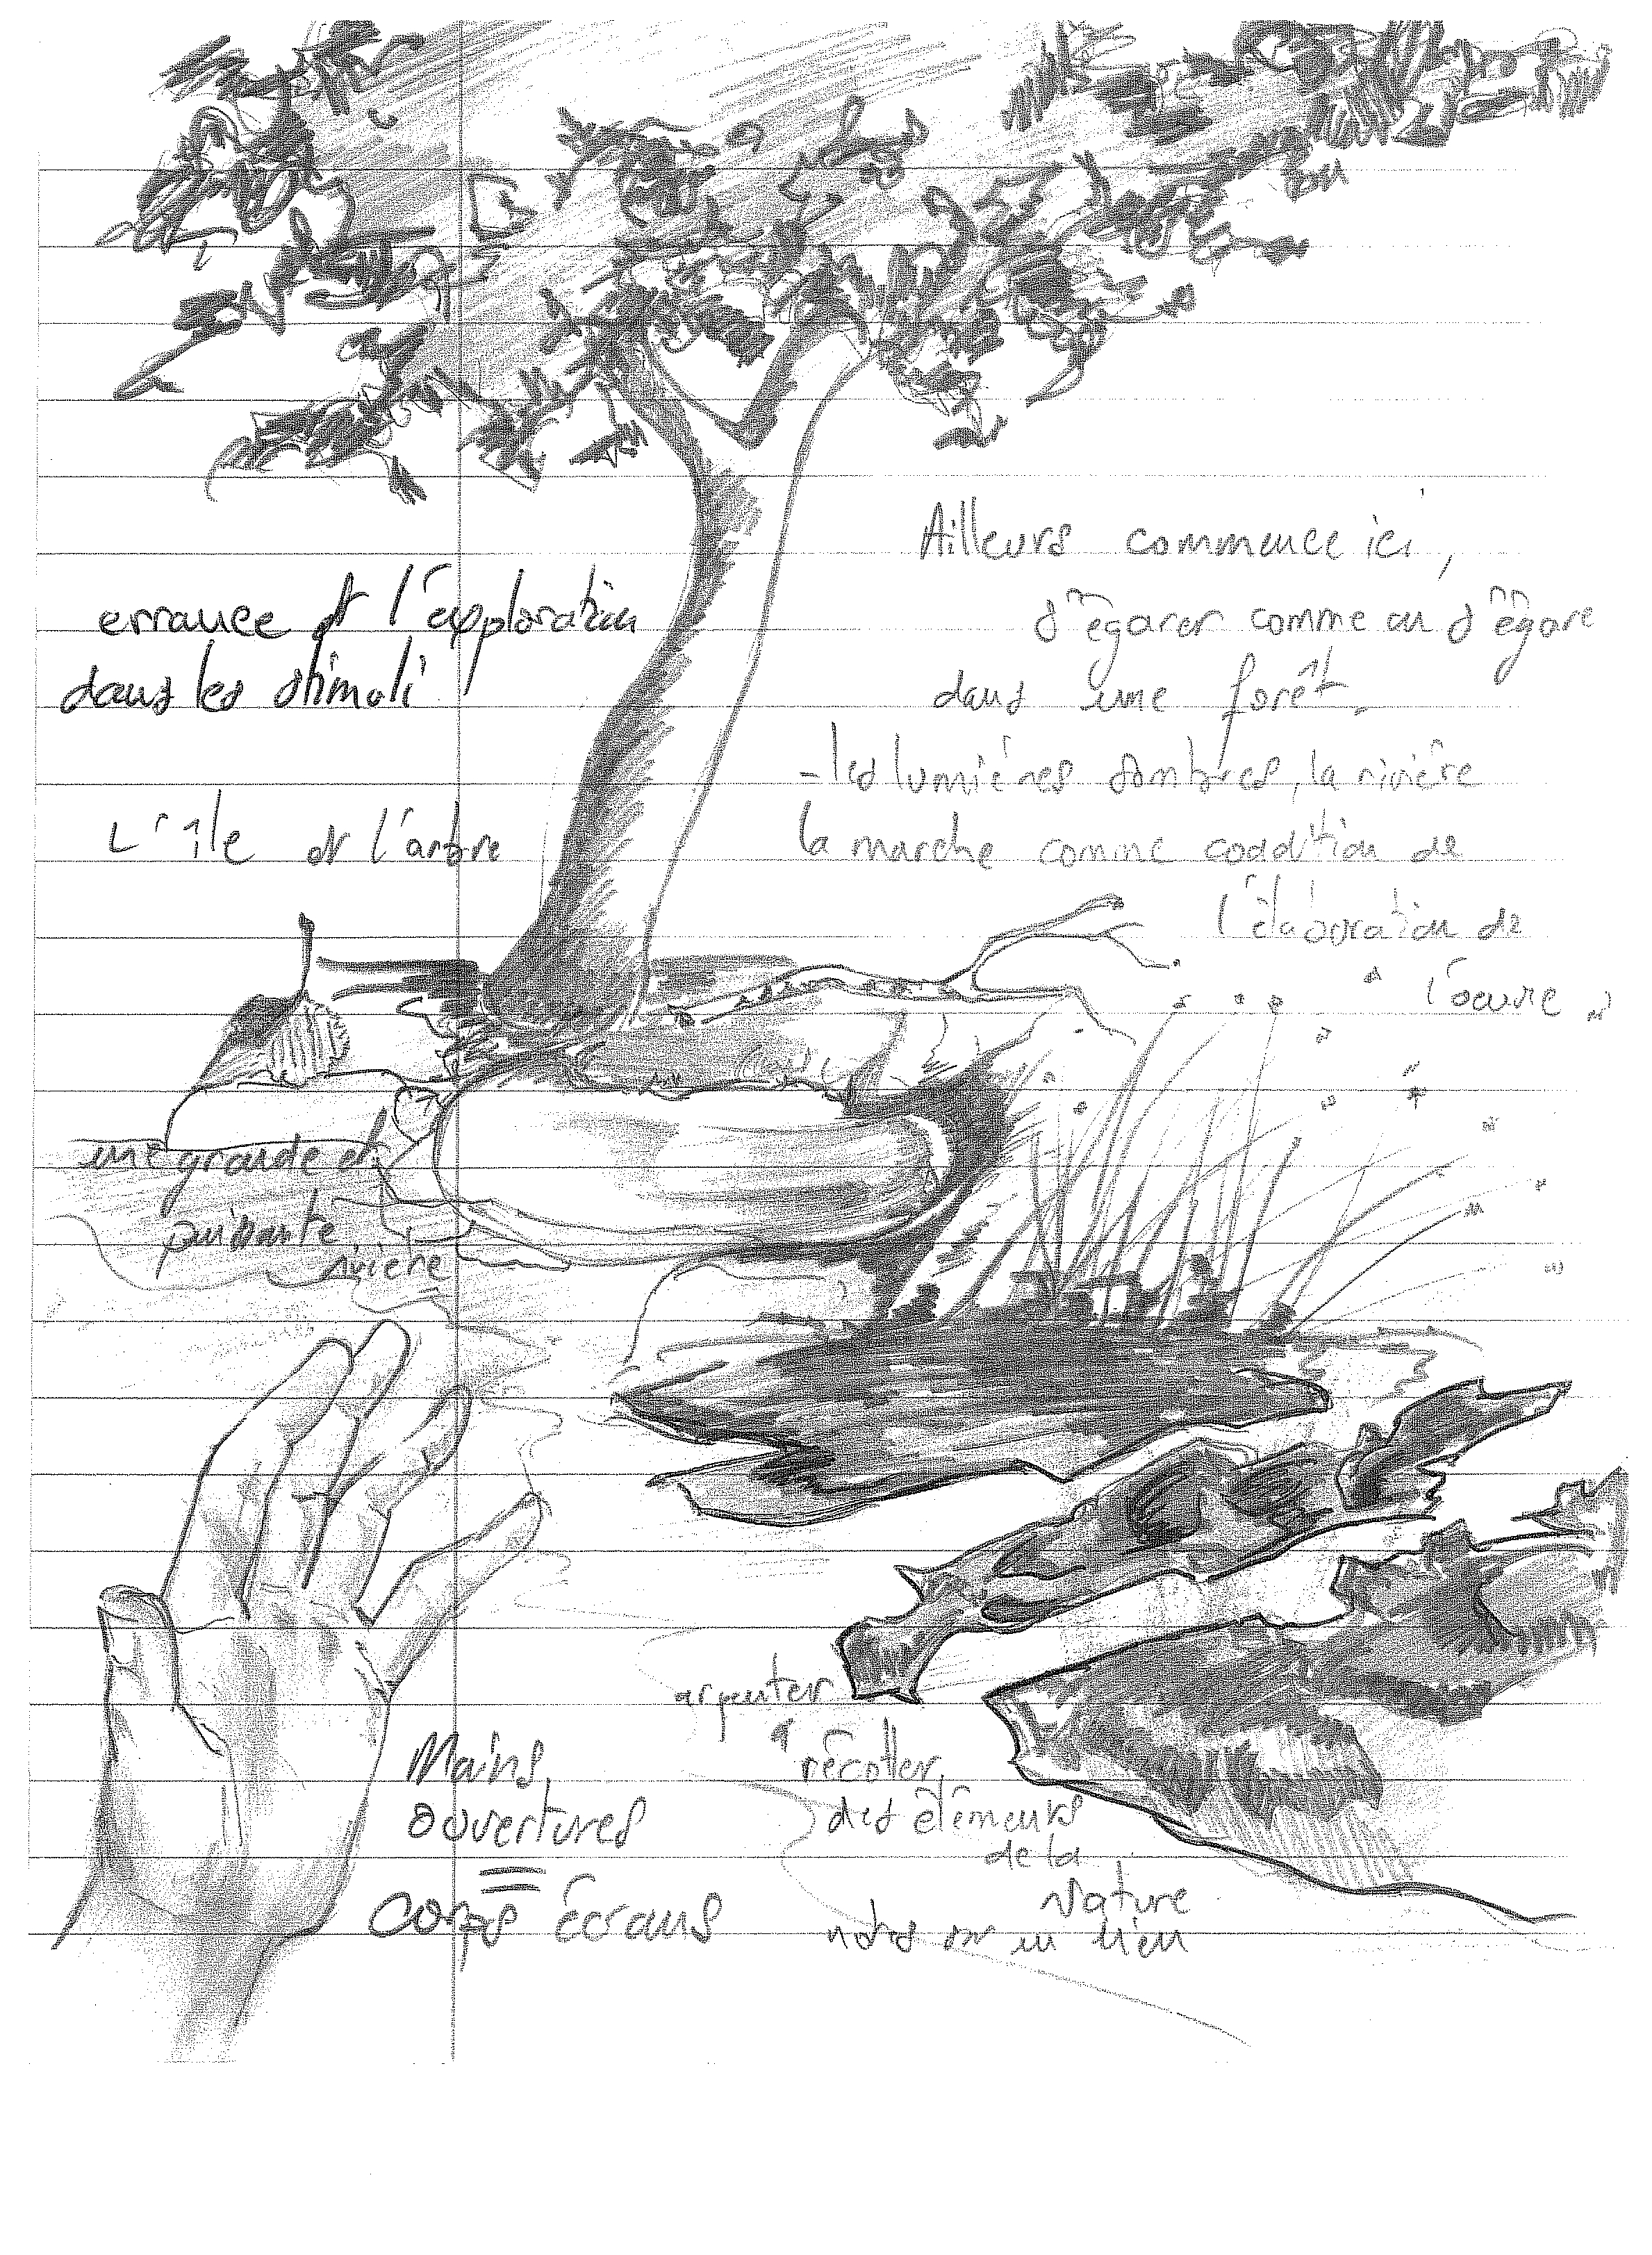 errance et l'exploration
dans les stimuli
L'île et l'arbre
Ailleurs commence ici,
s'égarer comme on s'égare
dans une forêt.
- les lumières sombres, la rivière
la marche comme condition de
l'élaboration de
l'oeuvre
une grande et
puissante
rivière
Mains
ouvertures
=
corps écrans
arpenter
récolter
des élements
de la
Nature
notes sur un lieu